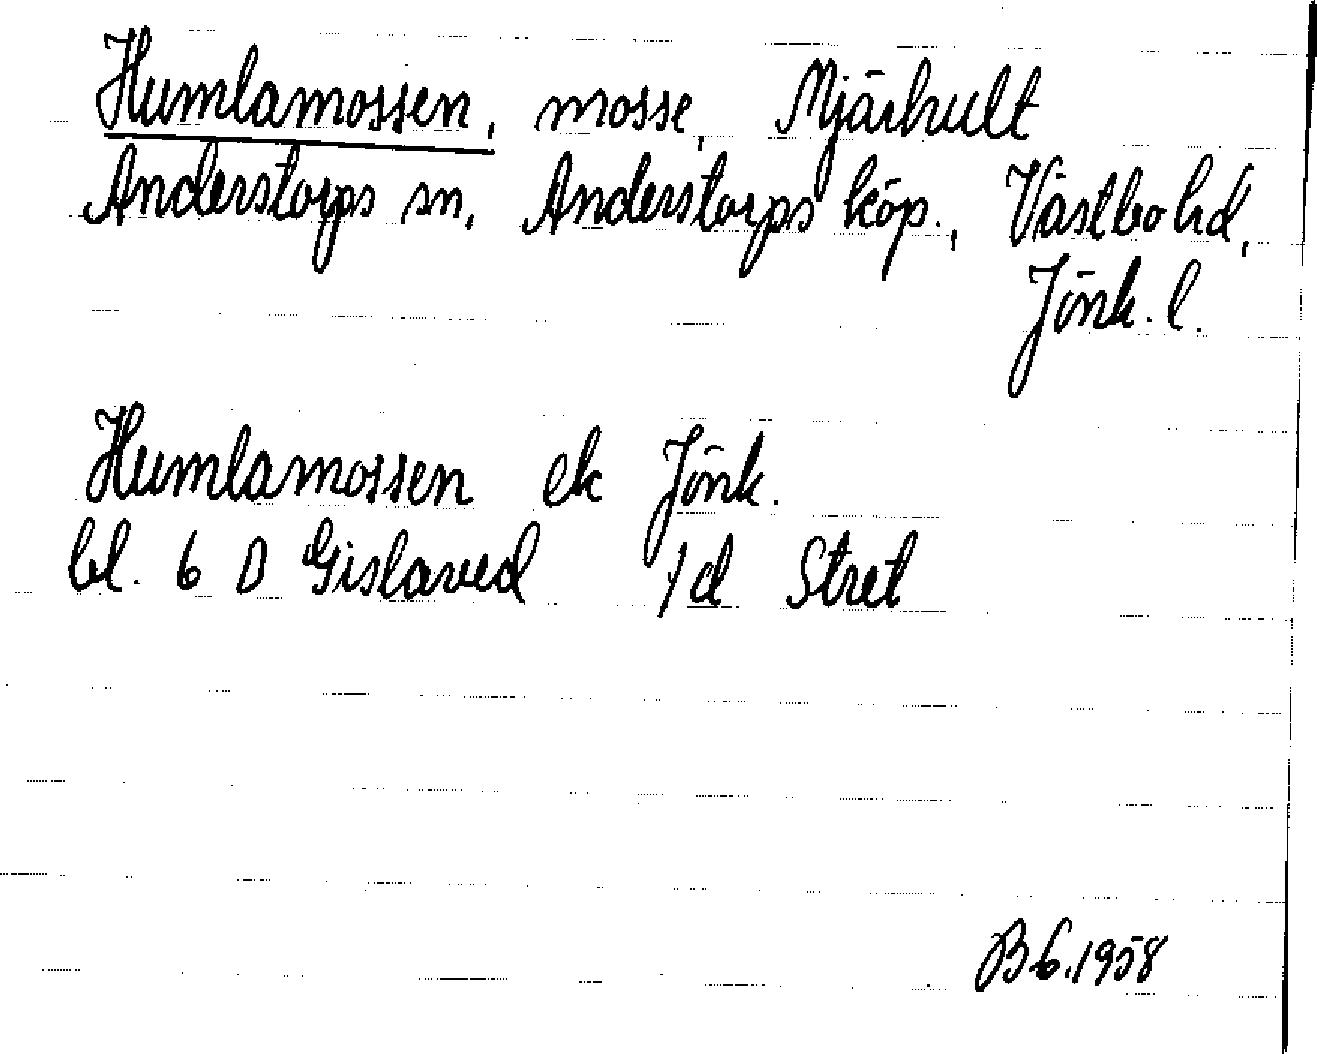 Humlamossen, mosse, Mjärhult
Anderstorps sn, Anderstorps köp., Västbo hd,
Jönk. l.
Humlamossen ek Jönk.
bl. 6 D Gislaved 1d Stret
B 6.1958